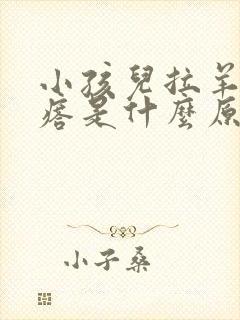 小孩兒拉羊
痞是什麼原
小子桑